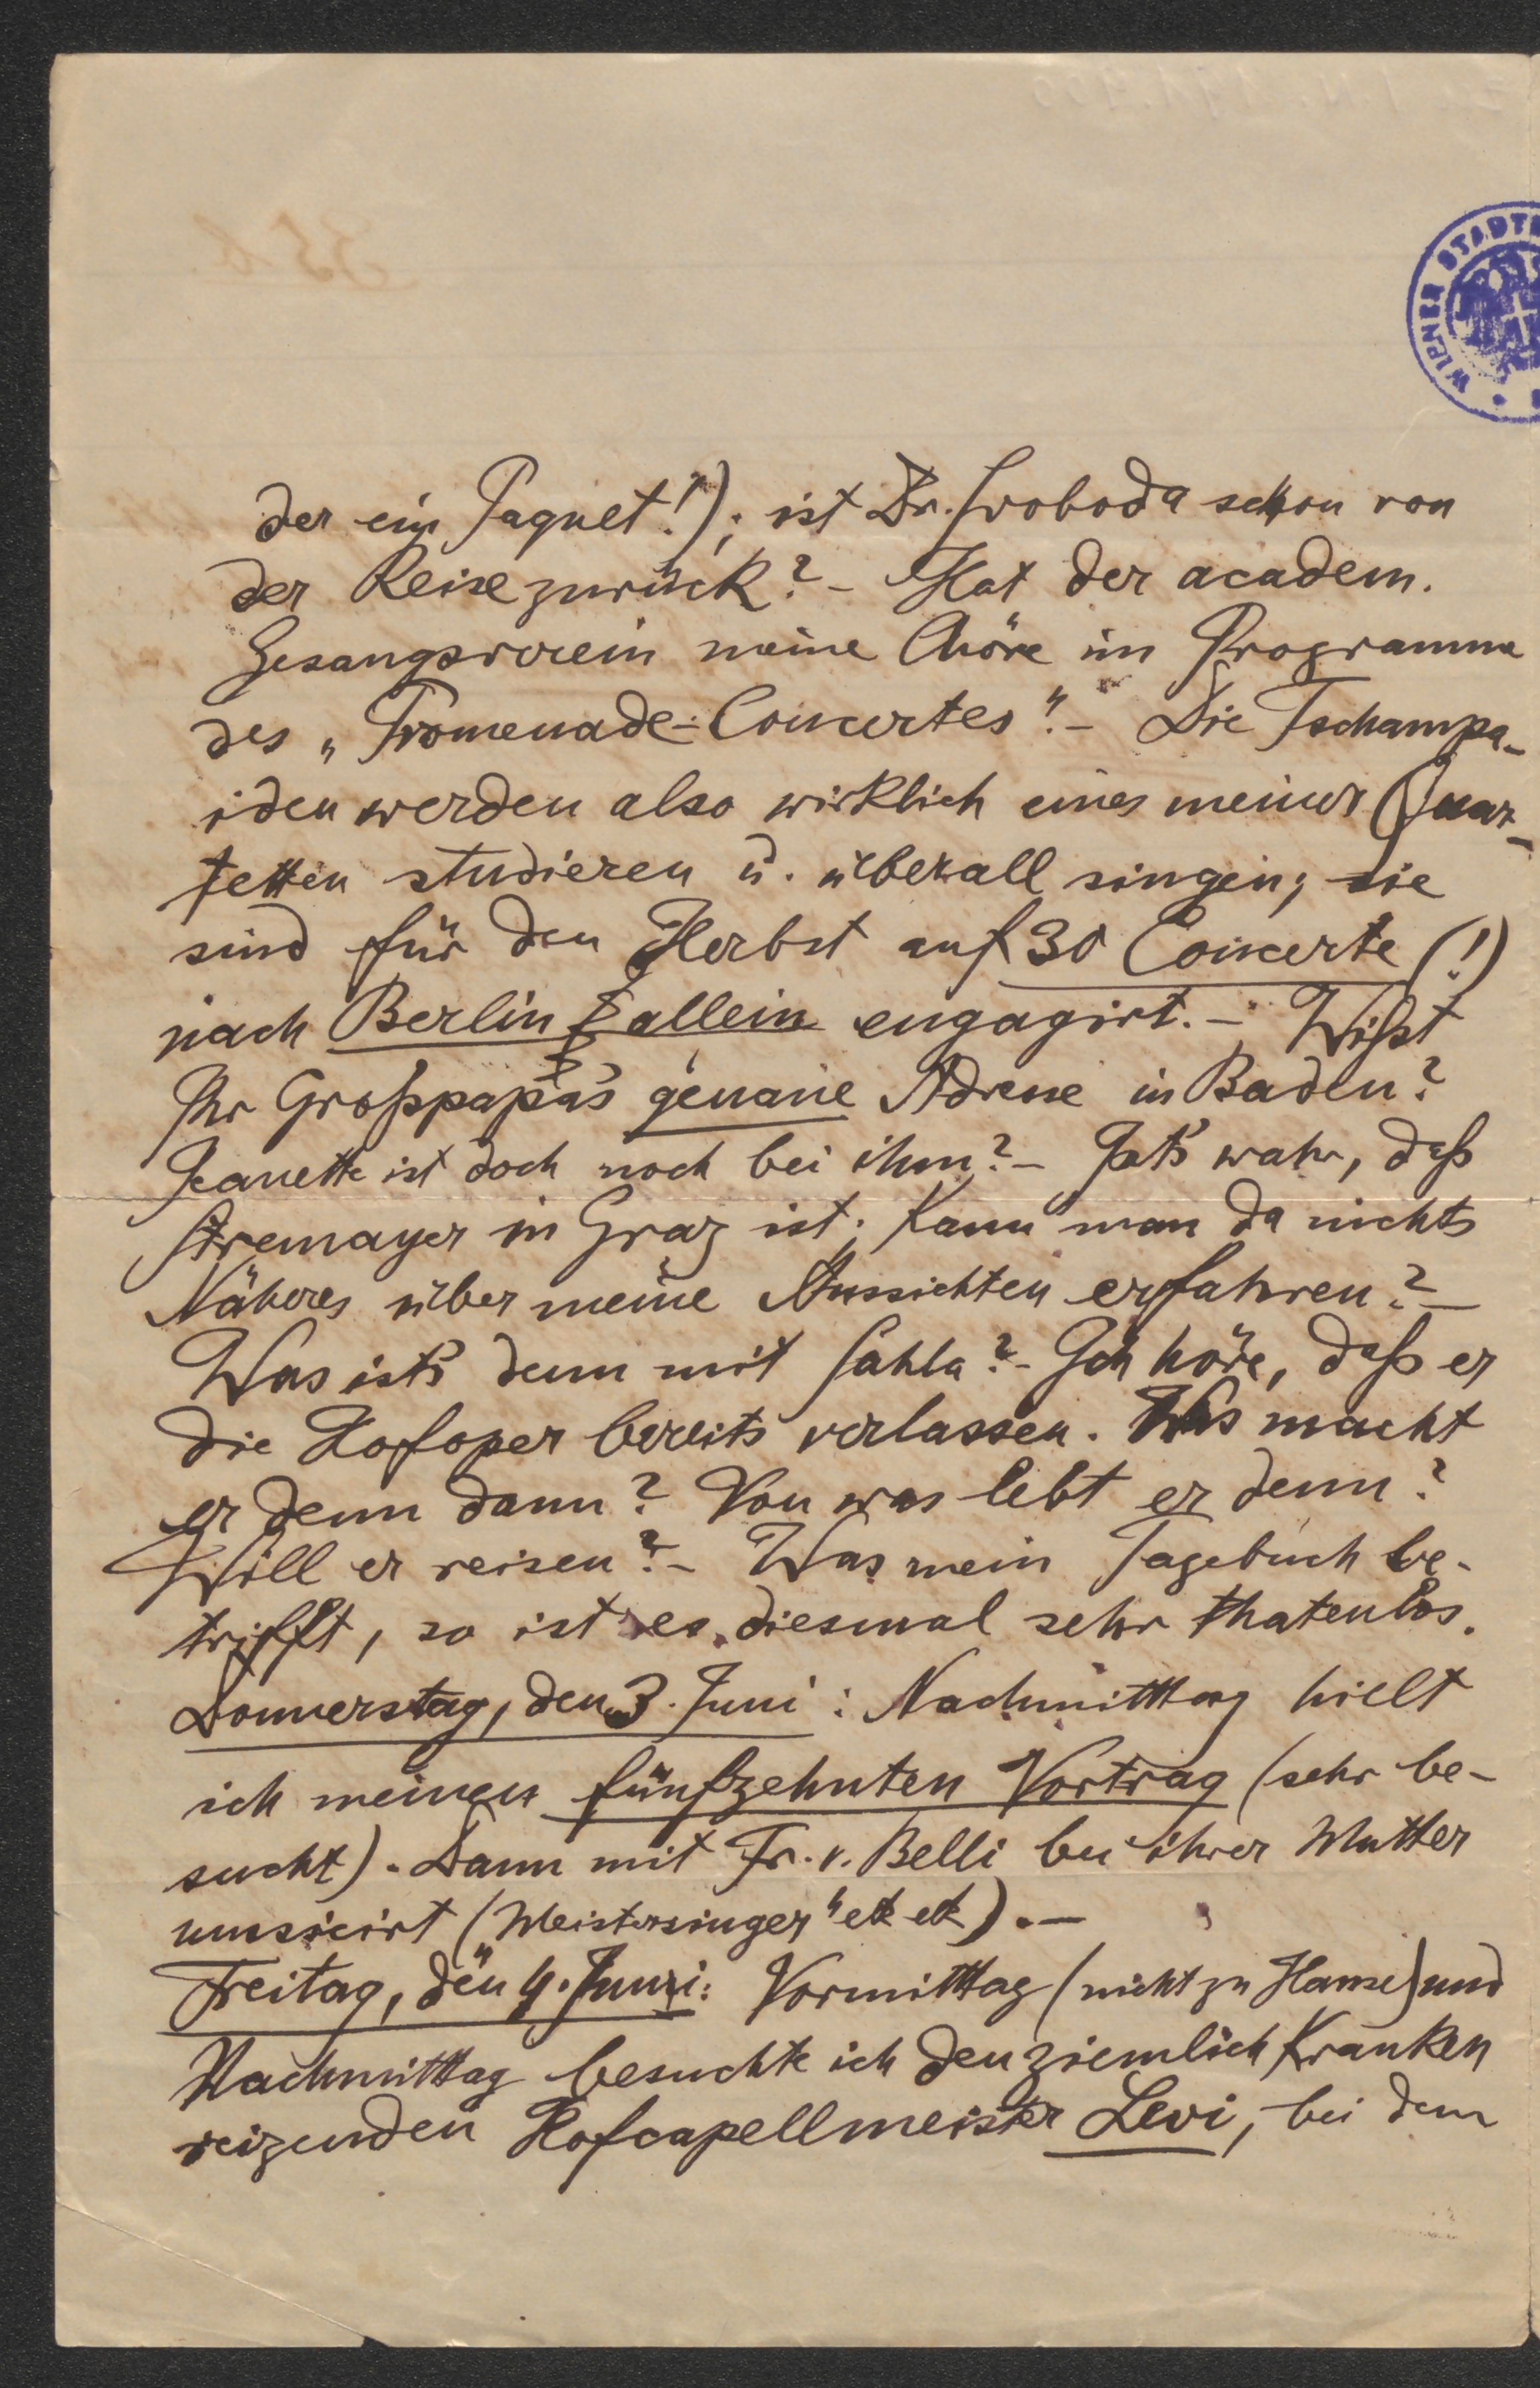 WIENER STADT
der ein Paquet!); ist Dr. Svoboda schon von
der Reise zurück? – Hat der academ.
Gesangsverein meine Chöre im Programme
des „Promenade-Concertes"? – Die Tschampa-
iden werden also wirklich eines meiner Quar-
tetten studieren u. überall singen; sie
sind für den Herbst auf 30 Concerte (!)
nach Berlin allein engagirt. – Wißt
Ihr Großpapa's genaue Adresse in Baden?
Jeanette ist doch noch bei ihm? – Ist's wahr, daß
Stremayer in Graz ist; kann man da nichts
Näheres über meine Aussichten erfahren? –
Was ist's denn mit Sahla? – Ich höre, daß er
die Hofoper bereits verlassen. Was macht
er denn dann? Von was lebt er denn?
Will er reisen? – Was mein Tagebuch be-
trifft, so ist es diesmal sehr thatenlos.
Donnerstag, den 3. Juni: Nachmitttag hielt
ich meinen fünfzehnten Vortrag (sehr be-
sucht). Dann mit Fr. v. Belli bei ihrer Mutter
musicirt (Meistersinger" etc etc). –
Freitag, den 4. Juni: Vormitttag (nicht zu Hause) und
Nachmitttag besuchte ich den ziemlich kranken
reizenden Hofcapellmeister Levi, bei dem